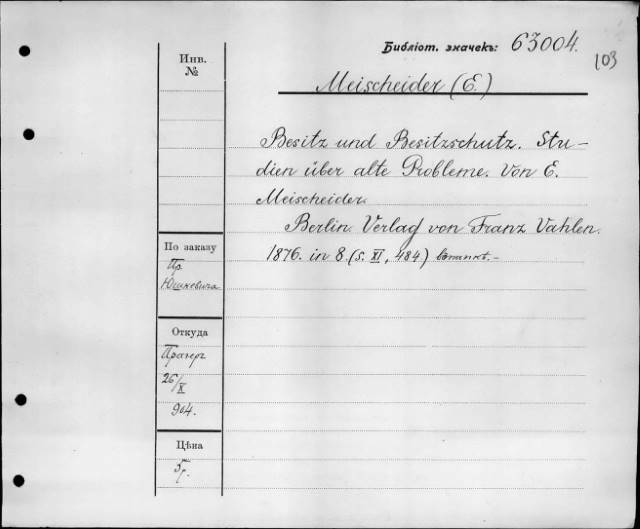 Библіот. значекъ: 63004.
103
Инв.
№
Meischeider (E.)
Besitz und Besitzschutz. Stu-
dien über alte Probleme. Von E.
Meischeider.
Berlin. Verlag von Franz Vahlen.
1876. in 8. (S. XI, 484)
По заказу
Пр
Юшкевича
Откуда
Прагер
26/X
904.
Цѣна